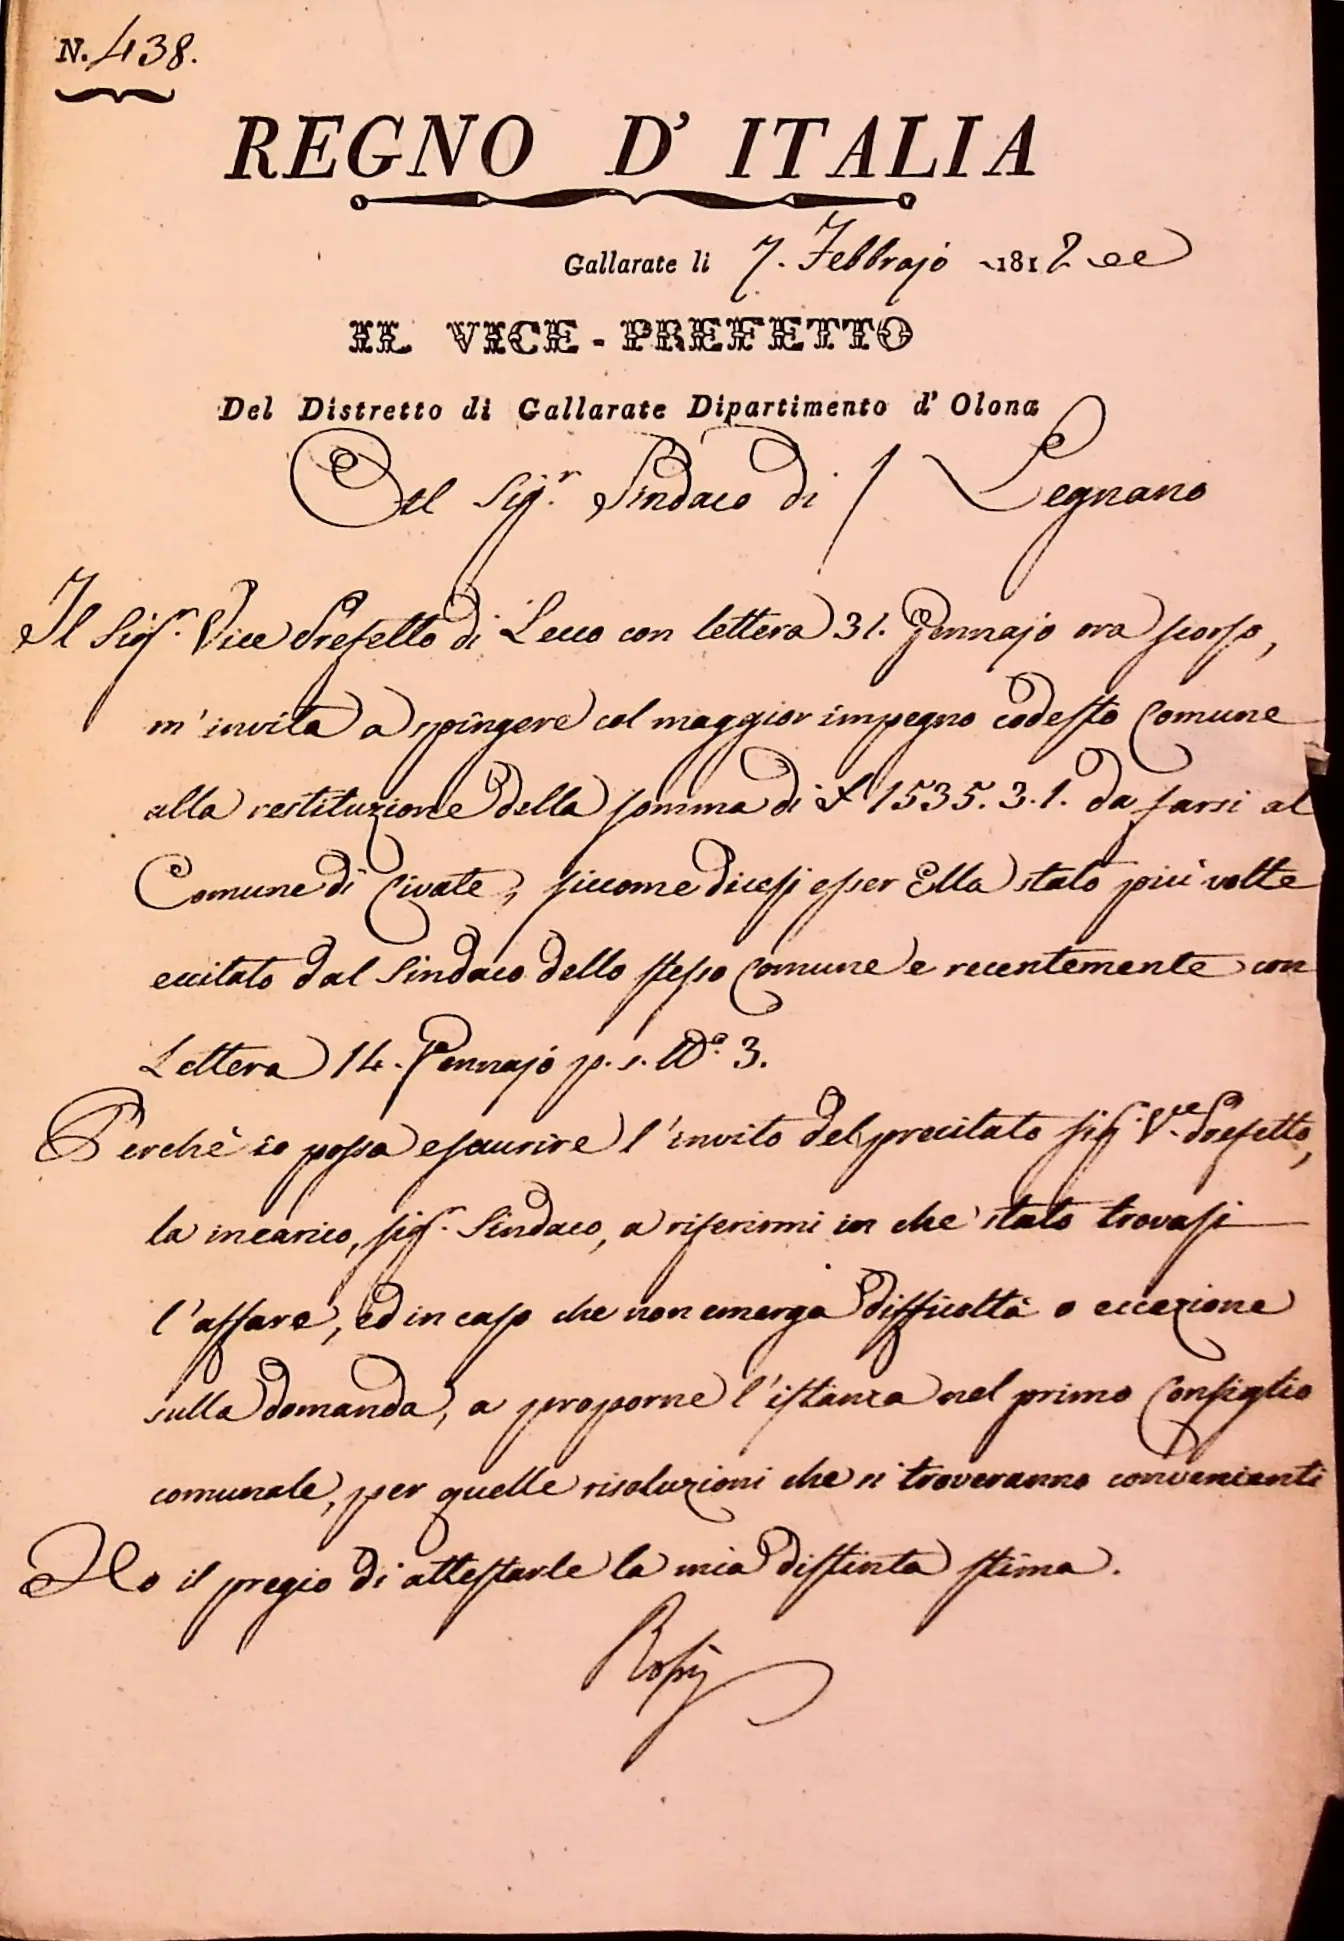 N. 438.
REGNO D' ITALIA
Gallarate li 7. Febbrajo 1812
IL VICE-PREFETTO
Del Distretto di Gallarate Dipartimento d' Olona
Al Sigr. Sindaco di Legnano
Il Sigr. Vice Prefetto di Lecco con lettera 31. Gennajo ora scorso,
m'invita a spingere col maggior impegno codesto Comune
alla restituzione della somma di £ 1535. 3. 1. da farsi al
Comune di Civate, siccome dicesi esser Ella stato più volte
eccitato dal Sindaco dello stesso Comune e recentemente con
Lettera 14. Gennajo p. s. No. 3.
Perchè io possa esaurire l'invito del precitato sigr. Ve. Prefetto,
la incarico, sigr. Sindaco, a riferirmi in che stato trovasi
l'affare, ed in caso che non emerga difficoltà o eccezione
sulla domanda, a proporne l'istanza nel primo Consiglio
comunale, per quelle risoluzioni che si troveranno convenienti
Ho il pregio di attestarle la mia distinta stima.
Rossi